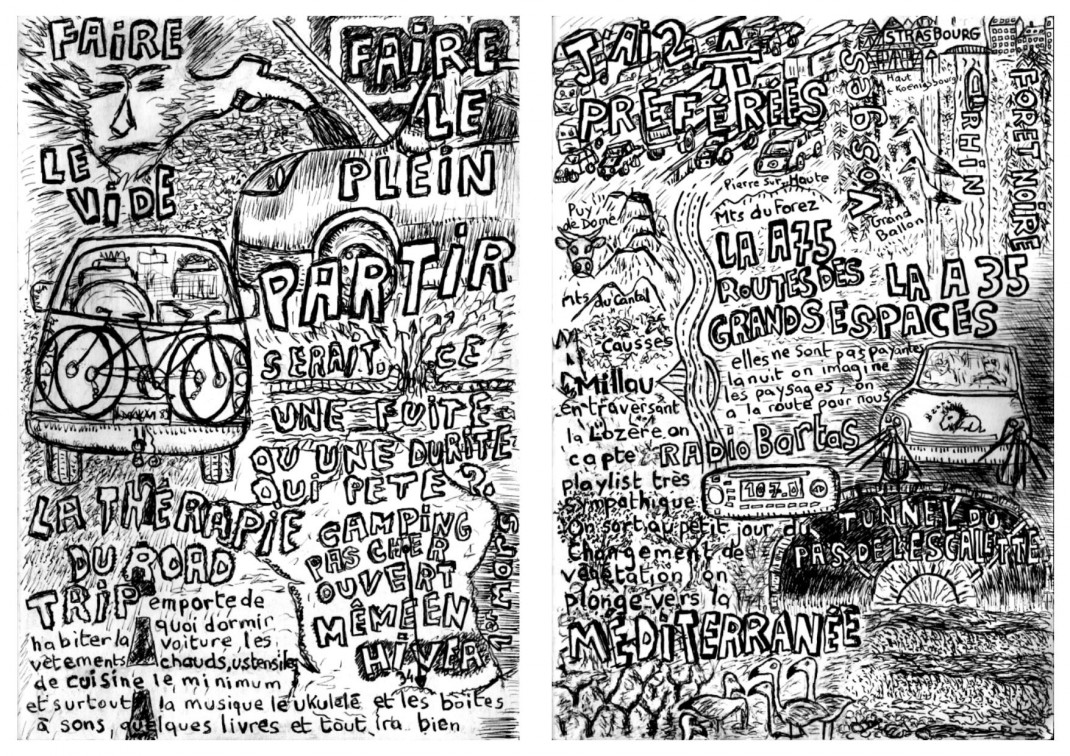 FAIRE
LE
VIDE
FAIRE
LE
PLEIN
PARTIR
SERAIT CE
UNE FUITE
QU'UNE DURITE
QUI PETE ?
LA THÉRAPIE
DU ROAD
TRIP emporte de
quoi dormir
habiter la voiture, les
vêtements chauds, ustensiles
de cuisine le minimum
et surtout la musique le ukulélé et les boîtes
à sons, quelques livres et tout ira bien
CAMPING
PAS CHER
OUVERT
MÊME EN
HIVER
34
J'AI 2 A
PRÉFÉRÉES
STRASBOURG
Haut
Koenigsbourg
Vosges
RHIN
FORET NOIRE
Grand
Ballon
Pierre sur Haute
Mts du Forez
Puy
de Dome
Mts du Cantal
LA A75
ROUTES DES LA A 35
GRANDS ESPACES
Causses
Millau
elles ne sont pas payantes
la nuit on imagine
les paysages, on
a la route pour nous
en traversant
la Lozère on
capte RADIO Bartas
playlist très
sympathique
107.0
On sort au petit jour du TUNNEL DU
PAS DE L'ESCALETTE
Changement de
végétation, on
plonge vers la
MÉDITERRANÉE